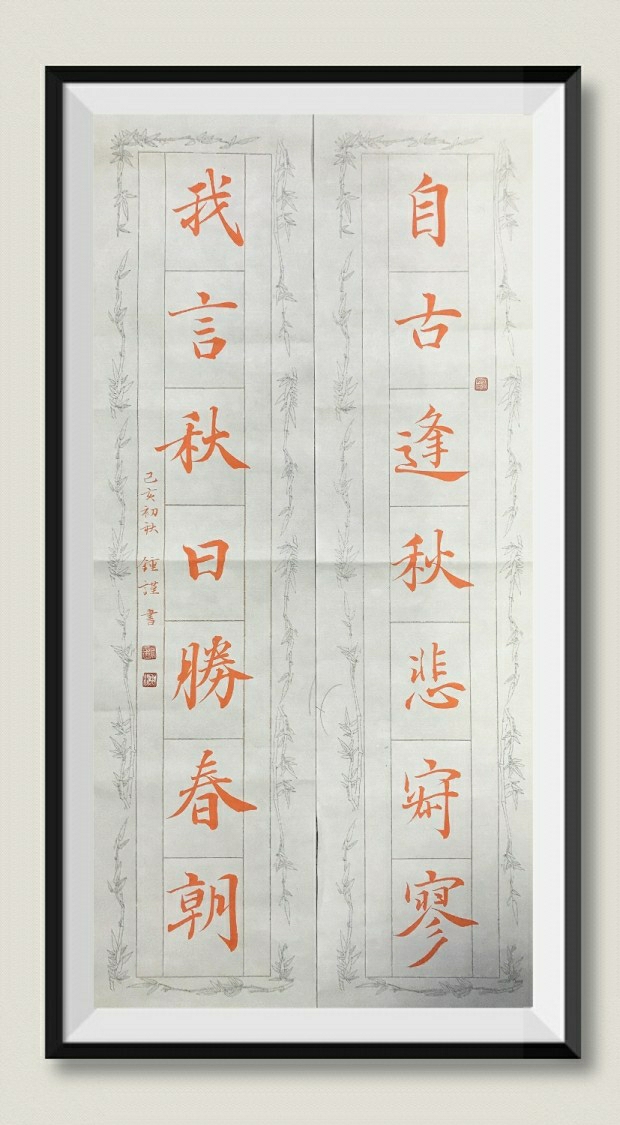 自古逢秋悲寂寥
我言秋日勝春朝
己亥初秋 鍾謹書